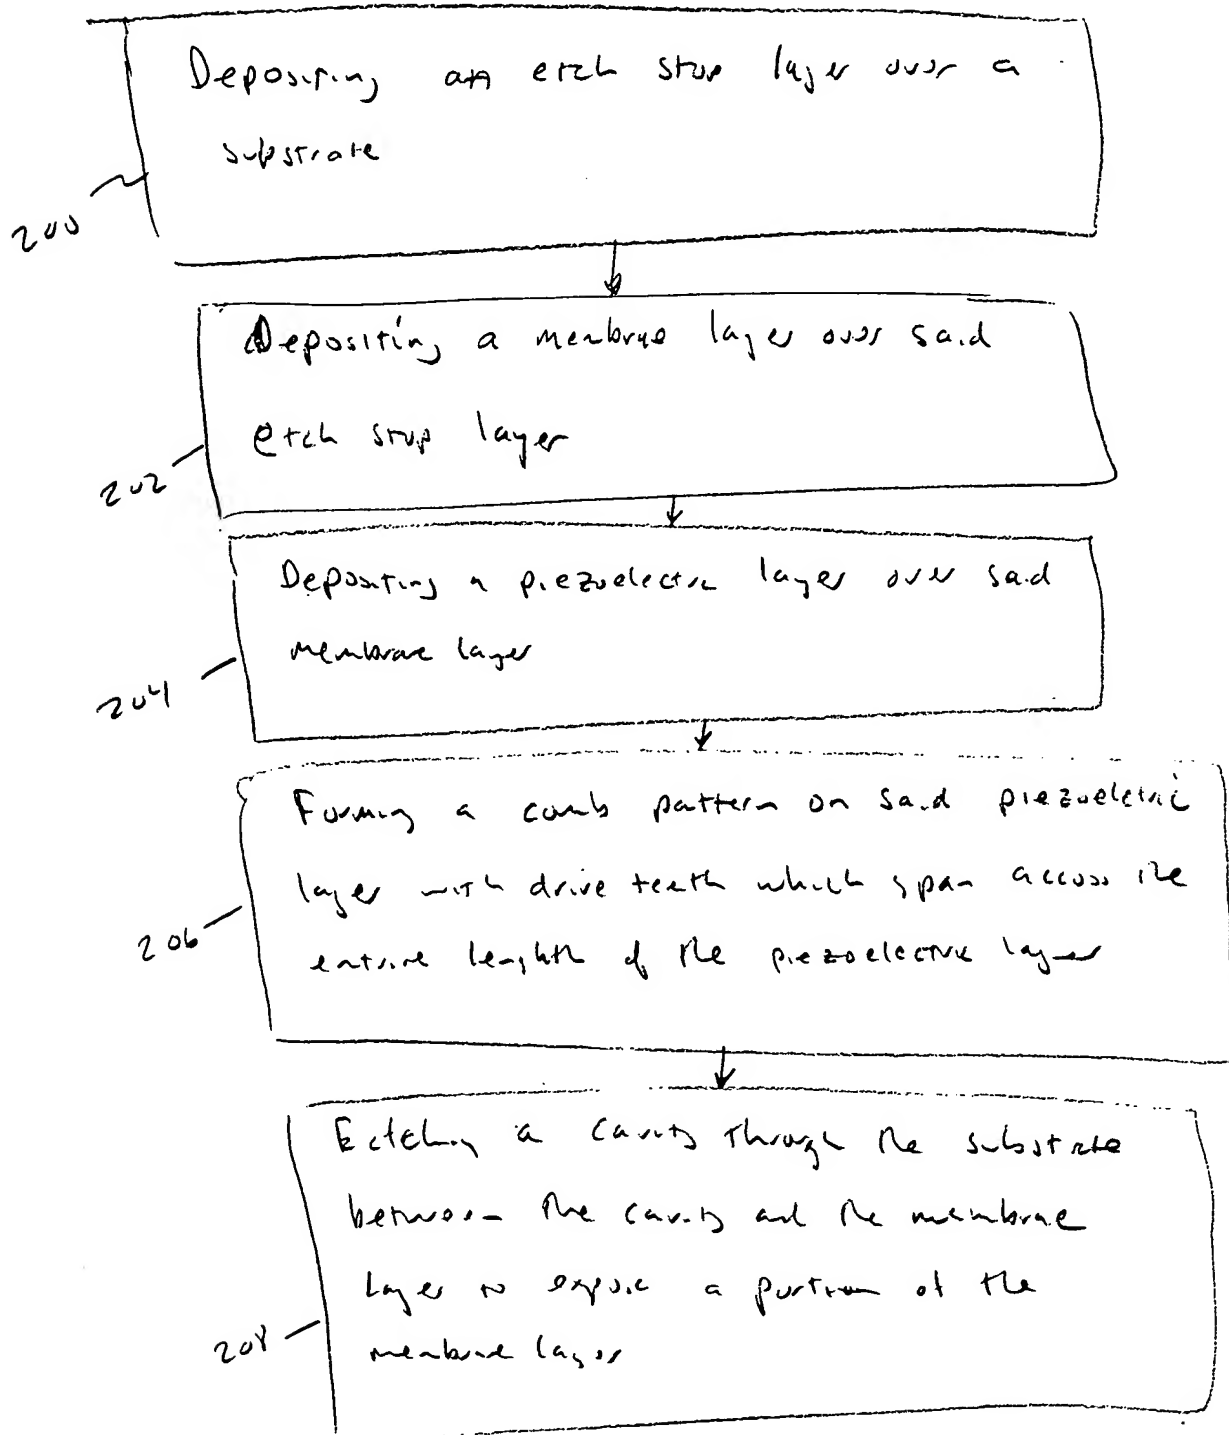 Depositing an etch stop layer over a
substrate
200
Depositing a membrane layer over said
etch stop layer
202
Depositing a piezoelectric layer over said
membrane layer
204
Forming a comb pattern on said piezoelectric
layer with drive teeth which span across the
206
entire length of the piezoelectric layer
Etching a cavity through the substrate
between the cavity and the membrane
layer to expose a portion of the
208
membrane layer